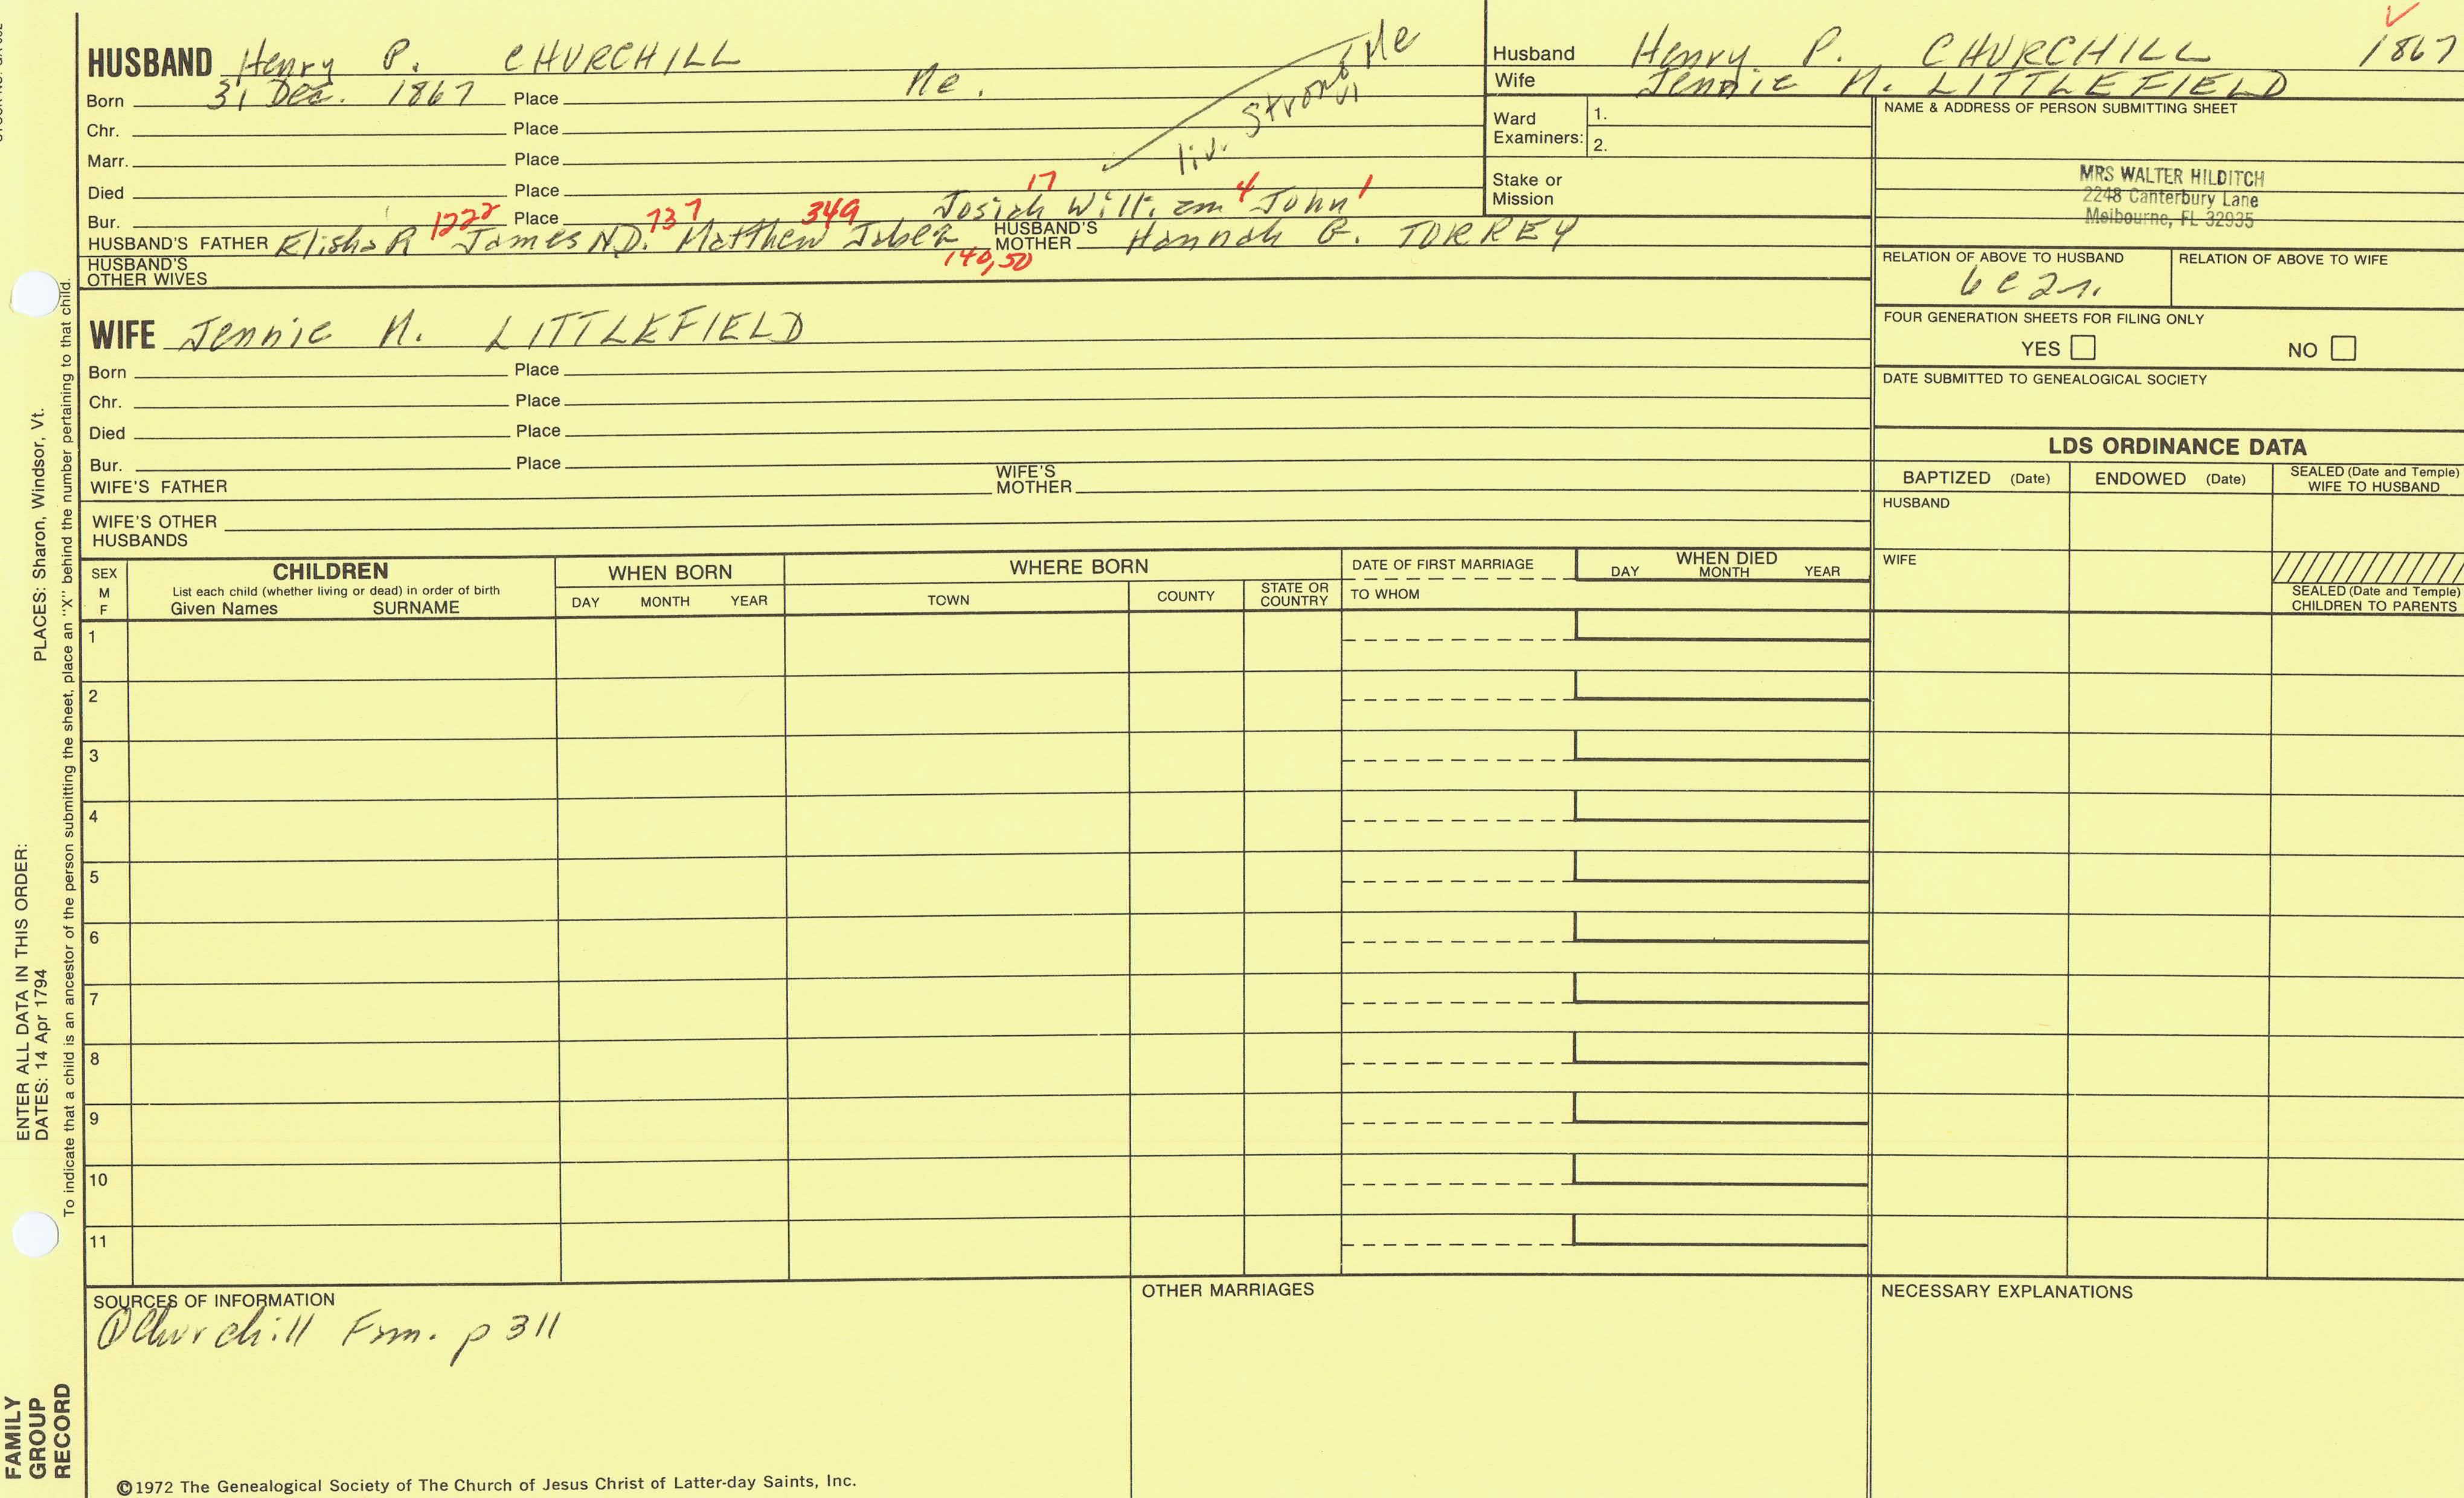 HUSBAND Henry P. CHURCHILL
Born 31 Dec. 1867 Place Me.
liv. Strong Me
Chr. Place
Marr. Place
Died Place
Bur. Place
17 4 1
Josiah William John
1222 737 349
HUSBAND'S FATHER Elisha R James N.D. Matthew Jabez HUSBAND'S MOTHER Hannah G. TORREY
140, 50
HUSBAND'S OTHER WIVES
WIFE Jennie N. LITTLEFIELD
Born Place
Chr. Place
Died Place
Bur. Place
WIFE'S FATHER WIFE'S MOTHER
WIFE'S OTHER HUSBANDS
Husband Henry P. CHURCHILL 1867
Wife Jennie N. LITTLEFIELD
Ward Examiners: 1.
2.
Stake or Mission
NAME & ADDRESS OF PERSON SUBMITTING SHEET
MRS WALTER HILDITCH
2248 Canterbury Lane
Melbourne, FL 32935
RELATION OF ABOVE TO HUSBAND RELATION OF ABOVE TO WIFE
6c2r.
FOUR GENERATION SHEETS FOR FILING ONLY
YES NO
DATE SUBMITTED TO GENEALOGICAL SOCIETY
LDS ORDINANCE DATA
BAPTIZED (Date) ENDOWED (Date) SEALED (Date and Temple) WIFE TO HUSBAND
HUSBAND
WIFE
SEALED (Date and Temple) CHILDREN TO PARENTS
SEX
M
F
CHILDREN
List each child (whether living or dead) in order of birth
Given Names SURNAME
WHEN BORN
DAY MONTH YEAR
WHERE BORN
TOWN COUNTY STATE OR COUNTRY
DATE OF FIRST MARRIAGE
TO WHOM
WHEN DIED
DAY MONTH YEAR
1
2
3
4
5
6
7
8
9
10
11
SOURCES OF INFORMATION
① Churchill Fam. p 311
OTHER MARRIAGES
NECESSARY EXPLANATIONS
©1972 The Genealogical Society of The Church of Jesus Christ of Latter-day Saints, Inc.
FAMILY
GROUP
RECORD
ENTER ALL DATA IN THIS ORDER:
DATES: 14 Apr 1794
PLACES: Sharon, Windsor, Vt.
To indicate that a child is an ancestor of the person submitting the sheet, place an "X" behind the number pertaining to that child.